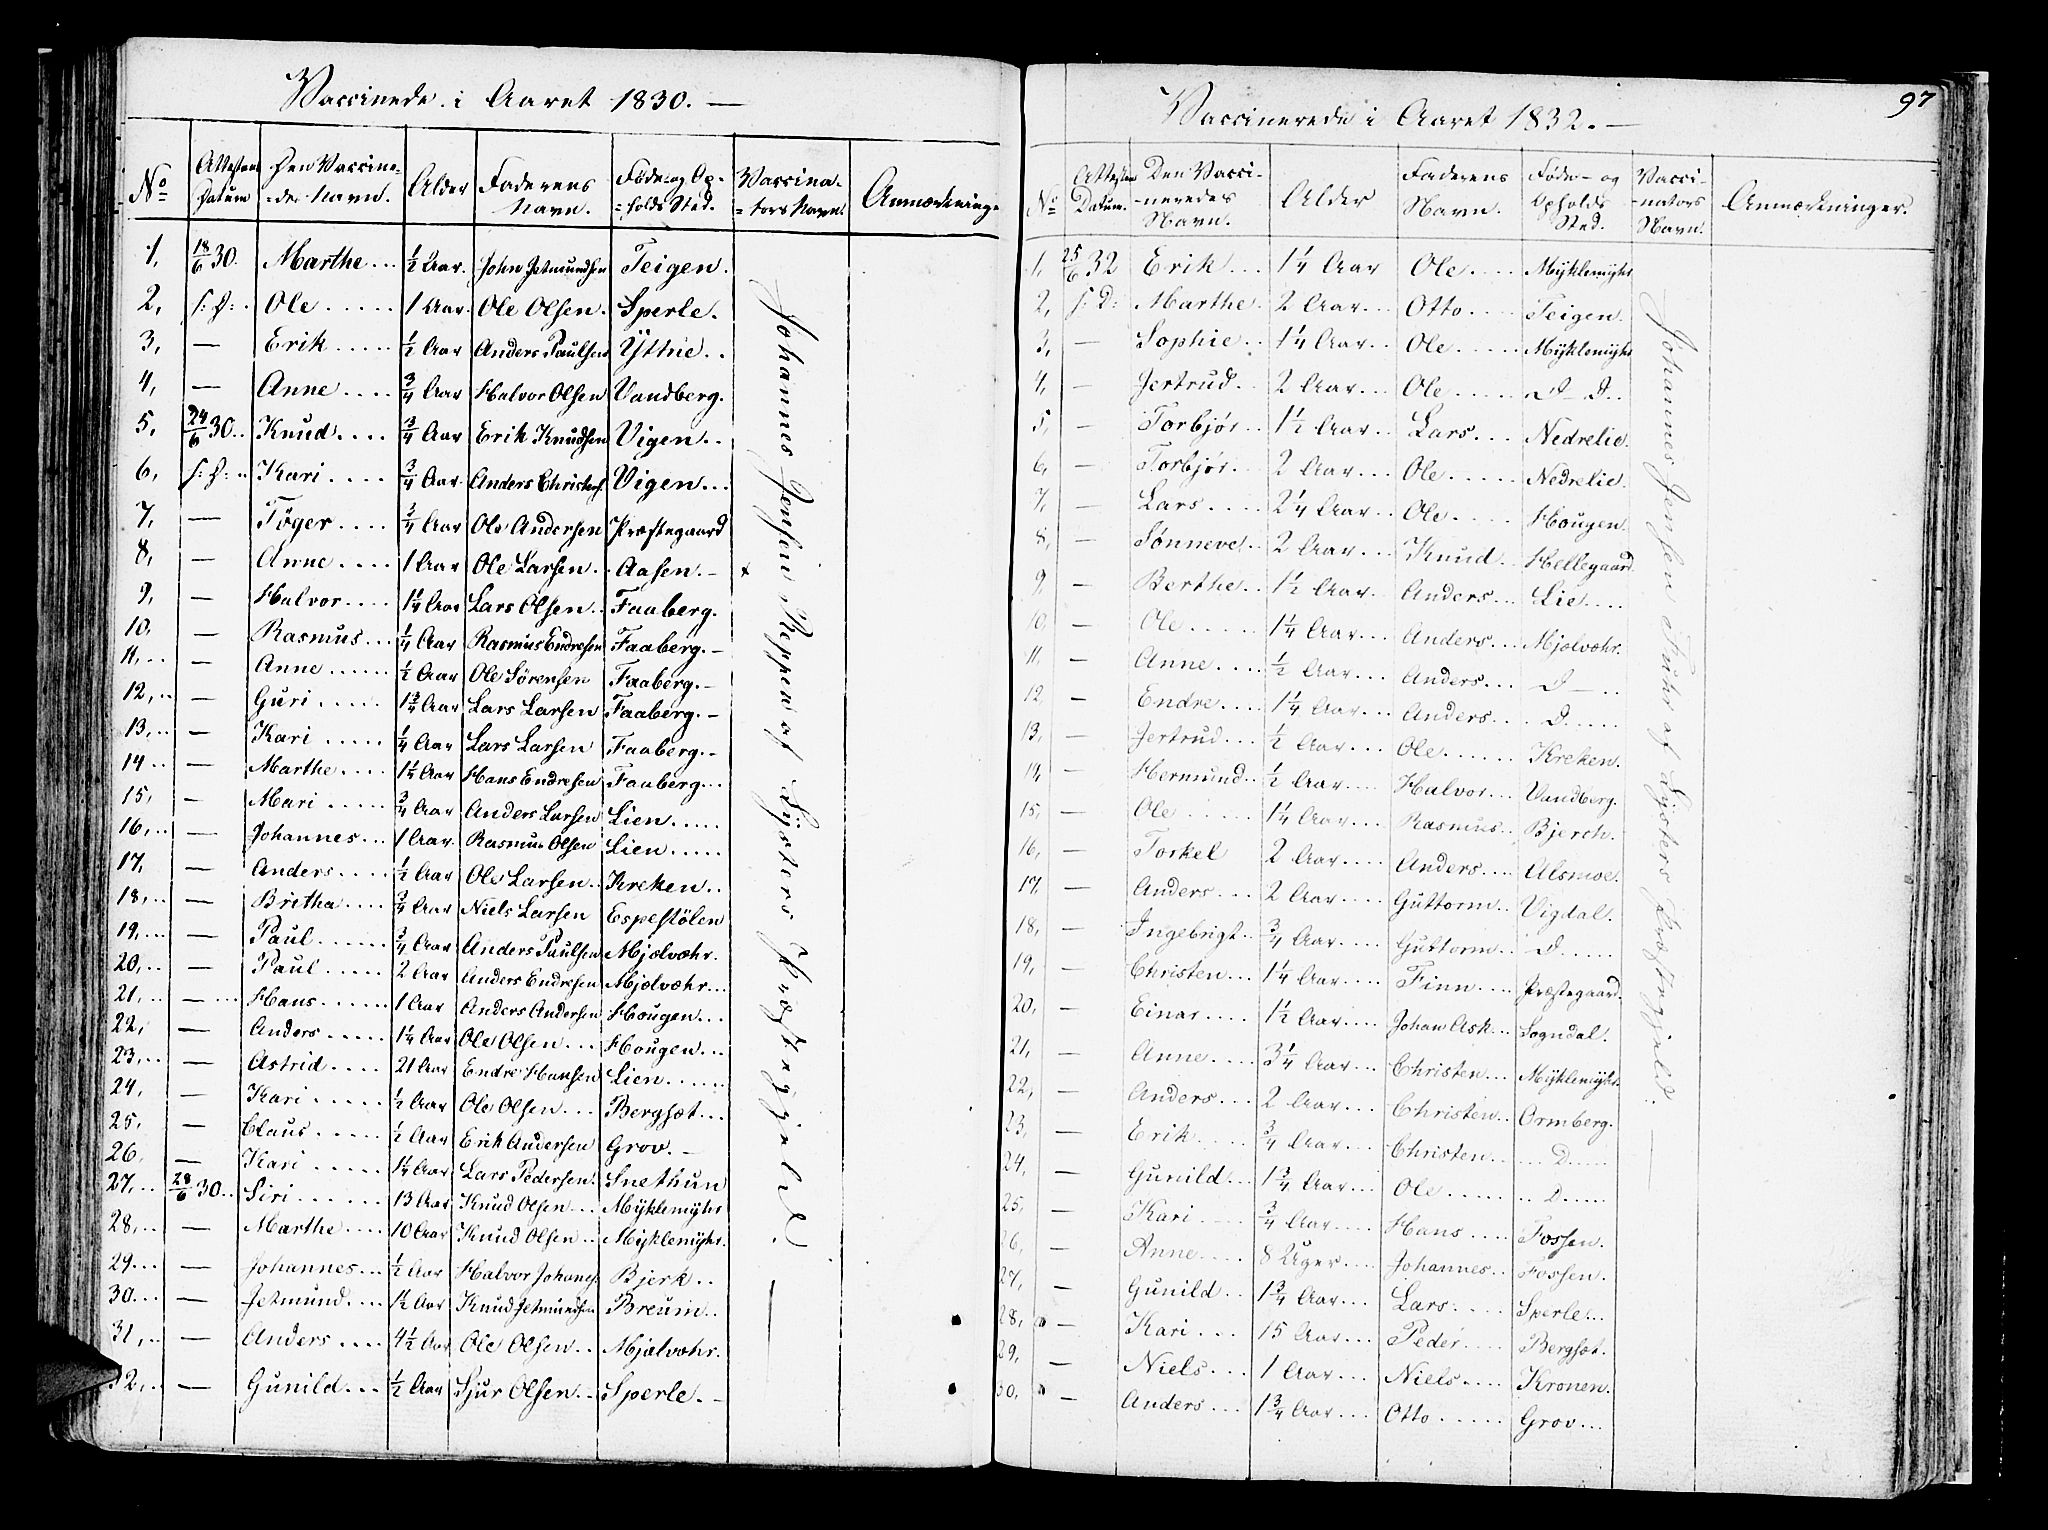 Vaccinede i Aaret 1830. —
No Attestens Datum Den Vaccine-de Navn. Alder Faderens Navn. Føde og Op-holds Sted. Vaccina-tors Navn. Anmærkninge
1, 18/6 30. Marthe... 1/2 Aar. John Jetmundsen Teigen.
2, s: D: . Ole ..... 1 Aar. Ole Olsen. Sperle.
3, — Erik ..... 1/2 Aar Anders Paulsen Yttrie..
4, — Anne .... 3/4 Aar Halvor Olsen Vandberg.
5, 24/6 30.. Knud.... 3/4 Aar Erik Knudsen Vigen..
6, s: D: .. Kari .... 3/4 Aar. Anders Christens. Vigen...
7, — Tøger .... 3/4 Aar Ole Andersen Præstegaard
8, — Anne .... 1 Aar Ole Larsen.. Aasen.—
9, — Halvor.... 1 1/4 Aar Lars Olsen.. Faaberg.
10, — Rasmus... 1/4 Aar Rasmus Endresen Faaberg.—
11,.. — Anne .... 1/2 Aar Ole Sørensen Faaberg.—
12,.. — Guri ..... 1 3/4 Aar Lars Larsen Faaberg.—
13,.. — Kari ..... 1/4 Aar Lars Larsen Faaberg.—
14.. — Marthe.... 1 1/4 Aar Hans Endresen Faaberg...
15, — Mari ..... 3/4 Aar Anders Larsen Lien.....
16,.. — Johannes... 1 Aar. Rasmus Olsen Lien.....
17, — Anders.... 1/2 Aar Ole Larsen.. Kreken..
18,.. — Britha.... 3/4 Aar Niels Larsen Espestölen
19,... — Paul...... 3/4 Aar Anders Paulsen Mjelvæhr.
20,... — Paul ..... 2 Aar Anders Endresen Mjelvæhr...
21,.. — ... Hans...... 1 Aar Anders Andersen Hougen...
22, — Anders.... 1 1/4 Aar Ole Olsen... Hougen...
23,.. — Astrid .... 21 Aar Endre Hansen Lien......
24, — Kari ..... 1/2 Aar Ole Olsen... Bergsæt...
25, — Claus..... 1/2 Aar Erik Andersen Grov. —
26. — Kari ..... 1 1/4 Aar Lars Pedersen. Snethun
27,.. 28/6 30.. Siri ...... 13 Aar Knud Olsen... Myklemyhr
28,... — Marthe.... 10 Aar Knud Olsen.. Myklemyhr.
29... — Johannes... 1/2 Aar Halvor Johans. Bjerk..
30... — Jetmund... 1 1/2 Aar Knud Jetmundsen Breum..
31,.. — Anders... 4 1/2 Aar Ole Olsen.. Mjelvæhr.
32,.. — Gunild... 1/2 Aar Sjur Olsen... Sperle.—
Johannes Jensen Reppen af Lysters Præstegjeld. —
97
Vaccinerede i Aaret 1832. —
No Attestens Datum. Den Vacci-neredes Navn. Alder Faderens Navn. Føde- og Opholds Sted. Vacci-nators Navn. Anmærkninger.
1, 25/6 32 Erik ... 1 1/4 Aar Ole.... Myklemyhr
2, s: D: Marthe.. 2 Aar... Otto .... Teigen.
3, — Sophie.. 1 1/4 Aar.. Ole..... Myklemyhr
4, — Jertrud.. 2 Aar... Ole..... D— D..
5, — Torbjør.. 1 1/2 Aar... Lars.... Nedrelie.
6, — Torbjør... 2 Aar... Ole..... Nedrelie.
7, — Lars..... 2 1/4 Aar... Ole.... Hougen.
8, — Sønneve.. 2 Aar... Knud.. Hellegaard.
9, — Berthe... 1 1/2 Aar... Anders... Lie....
10, — Ole ..... 1 1/4 Aar... Anders... Mjelvæhr.
11, — Anne .... 1/2 Aar... Anders... D—..
12, — Endre.... 1 1/4 Aar... Anders... . D.....
13, — Jertrud... 1/2 Aar... Ole...... Kreken.
14, — Hermund.. 1/2 Aar.... Halvor... Vandberg.
15, — Ole ..... 1 1/4 Aar... Rasmus.. Bjerch.
16, — Torkel 2 Aar.... Anders... Alsmoe.
17, — Anders... 2 Aar.... Guttorm.. Vigdal.
18, — Ingebrigt.. 3/4 Aar... Guttorm.. D.....
19, — Christen... 1 1/4 Aar... Finn.... Præstegaard.
20, — Einar .... 1 1/2 Aar.... Johan Ask.. Sogndal.
21, — Anne .... 3 1/4 Aar... Christen... Myklemyhr.
22, — Anders... 2 Aar.... Christen.. Ormberg.
23, — Erik .... 3/4 Aar... Christen.. ... D.....
24, — Gunild... 1 3/4 Aar... Ole...... .. D.....
25, — Kari .... 3/4 Aar... Hans.... Fossen.
26, — Anne.... 8 Uger... Johannes.. Fossen.
27, — Gunild.. 1 3/4 Aar... Lars.... Sperle...
28, — Kari ... 15 Aar... Peder... Bergsæt.
29, — Niels... 1 Aar... Niels.... Kronen.
30, — Anders... 1 3/4 Aar... Otto ..... Grov...
Johannes Jensen Fuhr af Lysters Præstegjeld. —